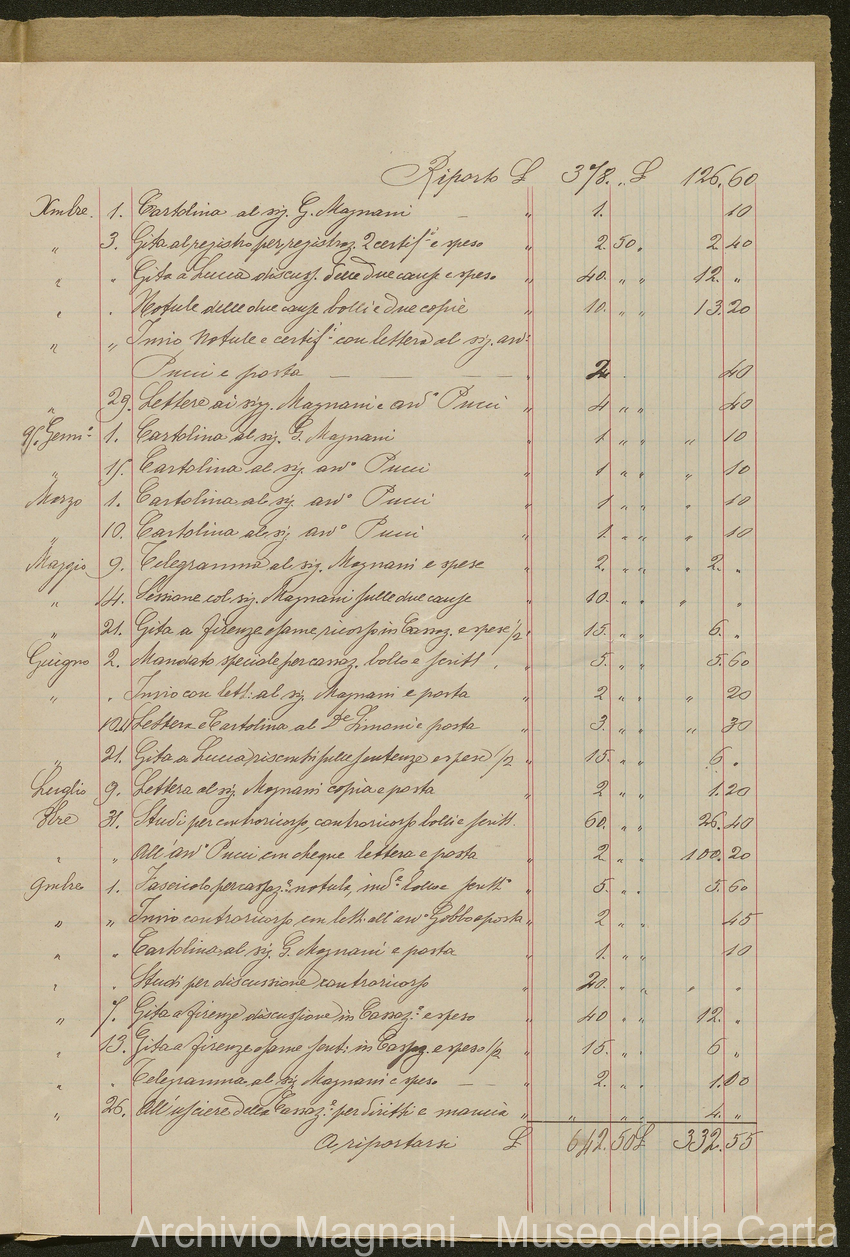 Riporto £ 378. „ £ 126.60
Xmbre. 1. Cartolina al sig. G. Magnani — „ 1. 10
„ 3. Gita al registro per registraz. 2 certif.i e spese „ 2.50. 2 40
„ „ Gita a Lucca discuss. delle due cause e spese „ 40. „ „ 12. „
„ . Notule delle due cause bolli e due copie „ 10. „ „ 13.20
„ „ Invio Notule e certif.i con lettera al sig. avv:
Pucci e posta — — — „ 2 . 40
„ 29. Lettere ai sigg. Magnani e avv.o Pucci „ 4 „ „ 40
95. Genn.o 1. Cartolina al sig. G. Magnani „ 1 „ „ „ 10
„ 15. Cartolina al sig. avv.o Pucci „ 1 „ „ „ 10
Marzo 1. Cartolina al sig. avv.o Pucci „ 1 „ „ „ 10
„ 10. Cartolina al sig. avv.o Pucci „ 1. „ „ „ 10
Maggio 9. Telegramma al sig. Magnani e spese „ 2. „ „ „ 2. „
„ 14. Sessione col sig. Magnani sulle due cause „ 10. „ „ „ „
„ 21. Gita a Firenze esame ricorso in Cassaz. e spese 1/2 „ 15. „ „ 6. „
Giugno 2. Mandato speciale per cassaz. bollo e scritt. „ 5. „ „ 5.60
„ . Invio con lett: al sig. Magnani e posta „ 2 „ „ „ 20
Lettera e Cartolina al Dr Simoni e posta „ 3. „ „ „ 30
„ 21. Gita a Lucca riscontri sulle sentenze e spese 1/2 „ 15. „ „ 6 .
Luglio 9. Lettera al sig. Magnani copia e posta „ 2 „ „ 1.20
8bre 31. Studi per controricorso, controricorso bolli e scritt. „ 60. „ „ 26.40
„ „ All'avv.o Pucci em cheque lettera e posta „ 2 „ „ 100.20
9mbre 1. Fascicolo per cassaz.e notula, ind.e bollo e scritt.o „ 5. „ . 5.60
„ „ Invio controricorso con lett: all'avv.o Gobbo e posta „ 2 „ „ 45
„ „ Cartolina al sig. G. Magnani e posta „ 1. „ „ 10
„ . Studi per discussione controricorso „ 20. „ „ „ „
„ 7. Gita a Firenze discussione in Cassaz.e e spese „ 40 „ „ 12. „
„ 13. Gita a Firenze esame sent: in Cassaz. e spese 1/2 „ 15. „ . 6 „
„ . Telegramma al sig. Magnani e spese — — „ 2. „ . 1.00
„ 26. All'usciere della Cassaz.e per diritti e mancia „ „ „ „ 4. „
A riportarsi £ 642.50 £ 332.55
Archivio Magnani - Museo della Carta